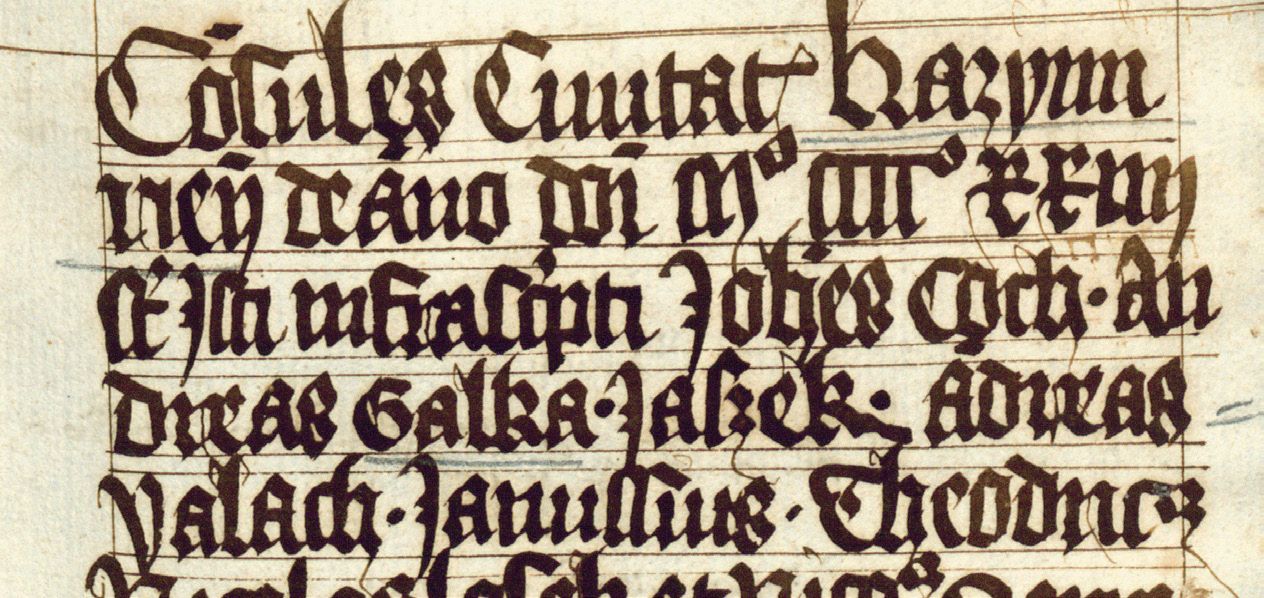 Cōsules Ciuitat kazymi
rień de āno dn̄i Mº CCCCº xxiiij
st̄ Isti infrascpti Joh̄es Czich · An
dreas Galka · Jaszek · Adreas
Valach · Janussius · Theodricꝰ